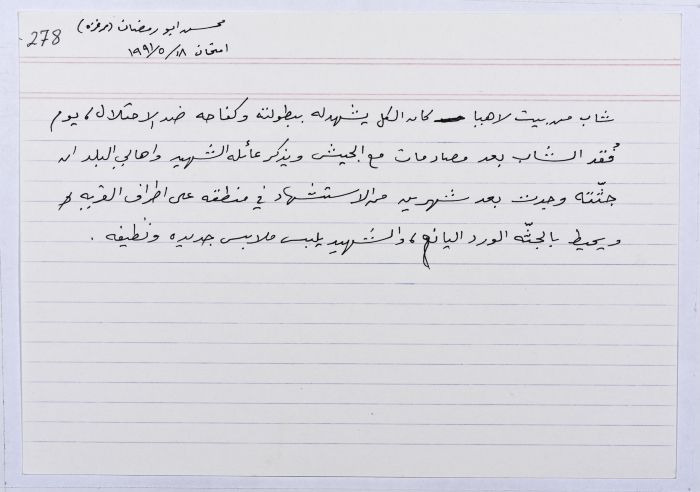 278
محسن ابو رمضان
امتحان ١٨/٥/١٩٩١
شاب من بيت لاهيا كان الكل يشهد له ببطولته وكفاحه ضد الاحتلال، يوم
فُقد الشاب بعد مصادمات مع الجيش ويذكر عائلة الشهيد واهالي البلد ان
جثّته وجدت بعد شهرين من الاستشهاد في منطقه على اطراف القريه
ويحيط بالجثّه الورد اليانع، والشهيد يلبس ملابس جديده ونظيفه .